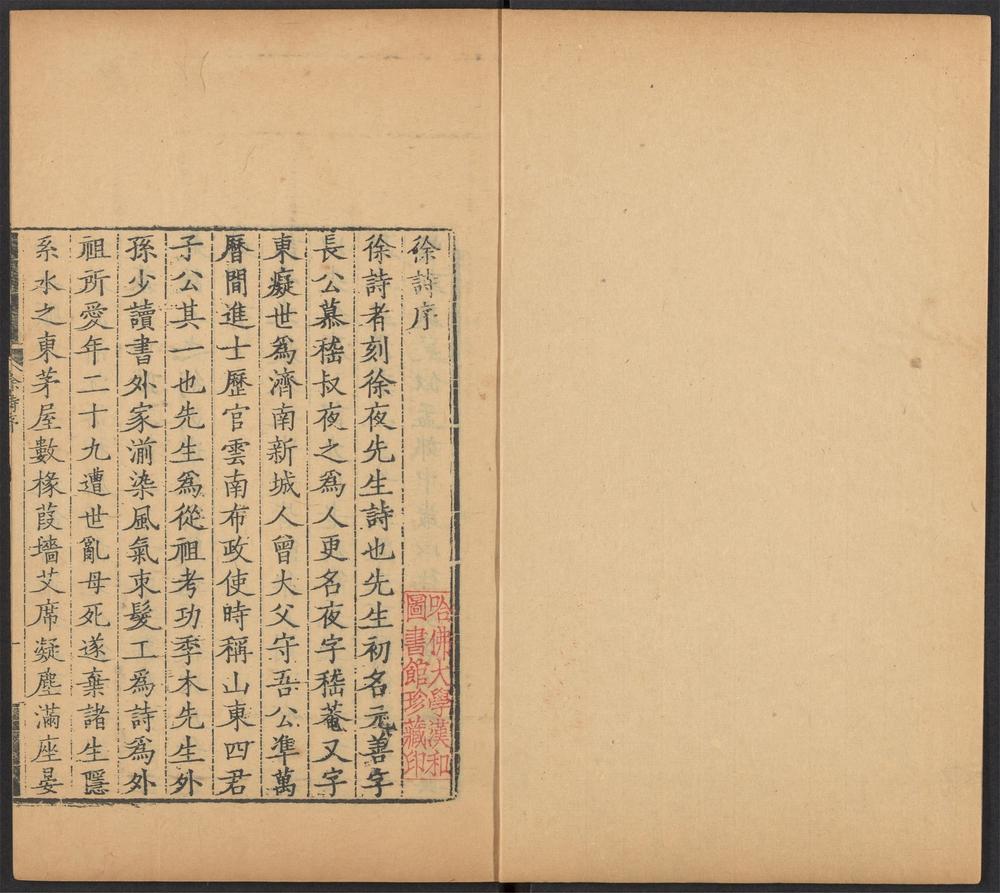 徐詩序
哈佛大學漢和
圖書館珍藏印
徐詩者刻徐夜先生詩也先生初名元善字
長公慕嵇叔夜之為人更名夜字嵇菴又字
東癡世為濟南新城人曾大父守吾公準萬
曆間進士歷官雲南布政使時稱山東四君
子公其一也先生為從祖考功季木先生外
孫少讀書外家湔染風氣束髮工為詩為外
祖所愛年二十九遭世亂母死遂棄諸生隱
系水之東茅屋數椽葭墻艾席凝塵滿座晏
徐詩序
一